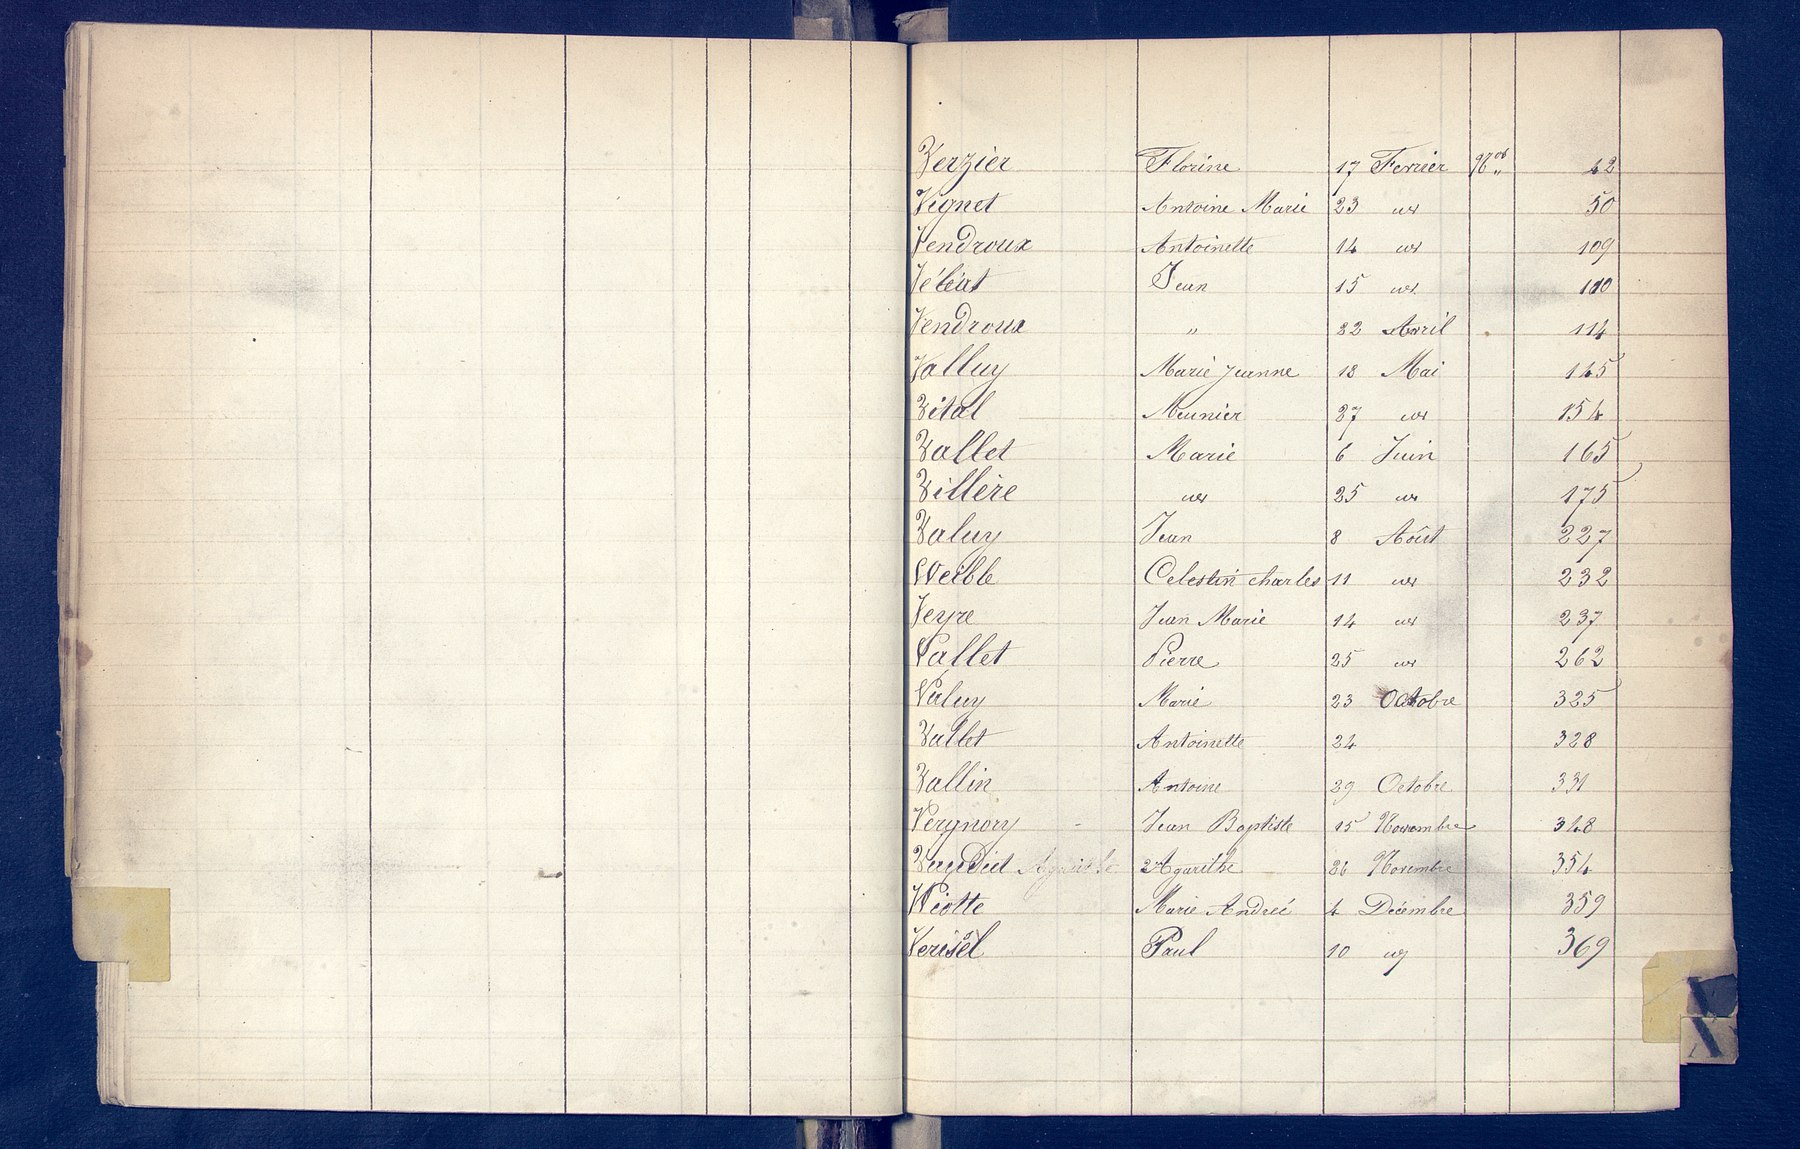 Verzier Florine 17 Fevrier 42
Vignet Antoine Marie 23 50
Vendroux Antoinette 14 109
Jean 15 110
Vendroux " 22 Avril 114
Valluy Marie Jeanne 18 Mai 145
Vital Meunier 27 154
Vallet Marie 6 Juin 165
Villère 25 175
Valuy Jean 8 Aôut 227
Weible Celestin charles 11 232
Veyre Jean Marie 14 237
Vallet Pierre 25 262
Valuy Marie 23 Octobre 325
Vallet Antoinette 24 328
Vallin Antoine 29 Octobre 331
Vergnory Jean Baptiste 15 Novembre 348
Agarithe 26 Novembre 354
Marie Andreé 4 Décembre 359
Verisel Paul 10 369
V